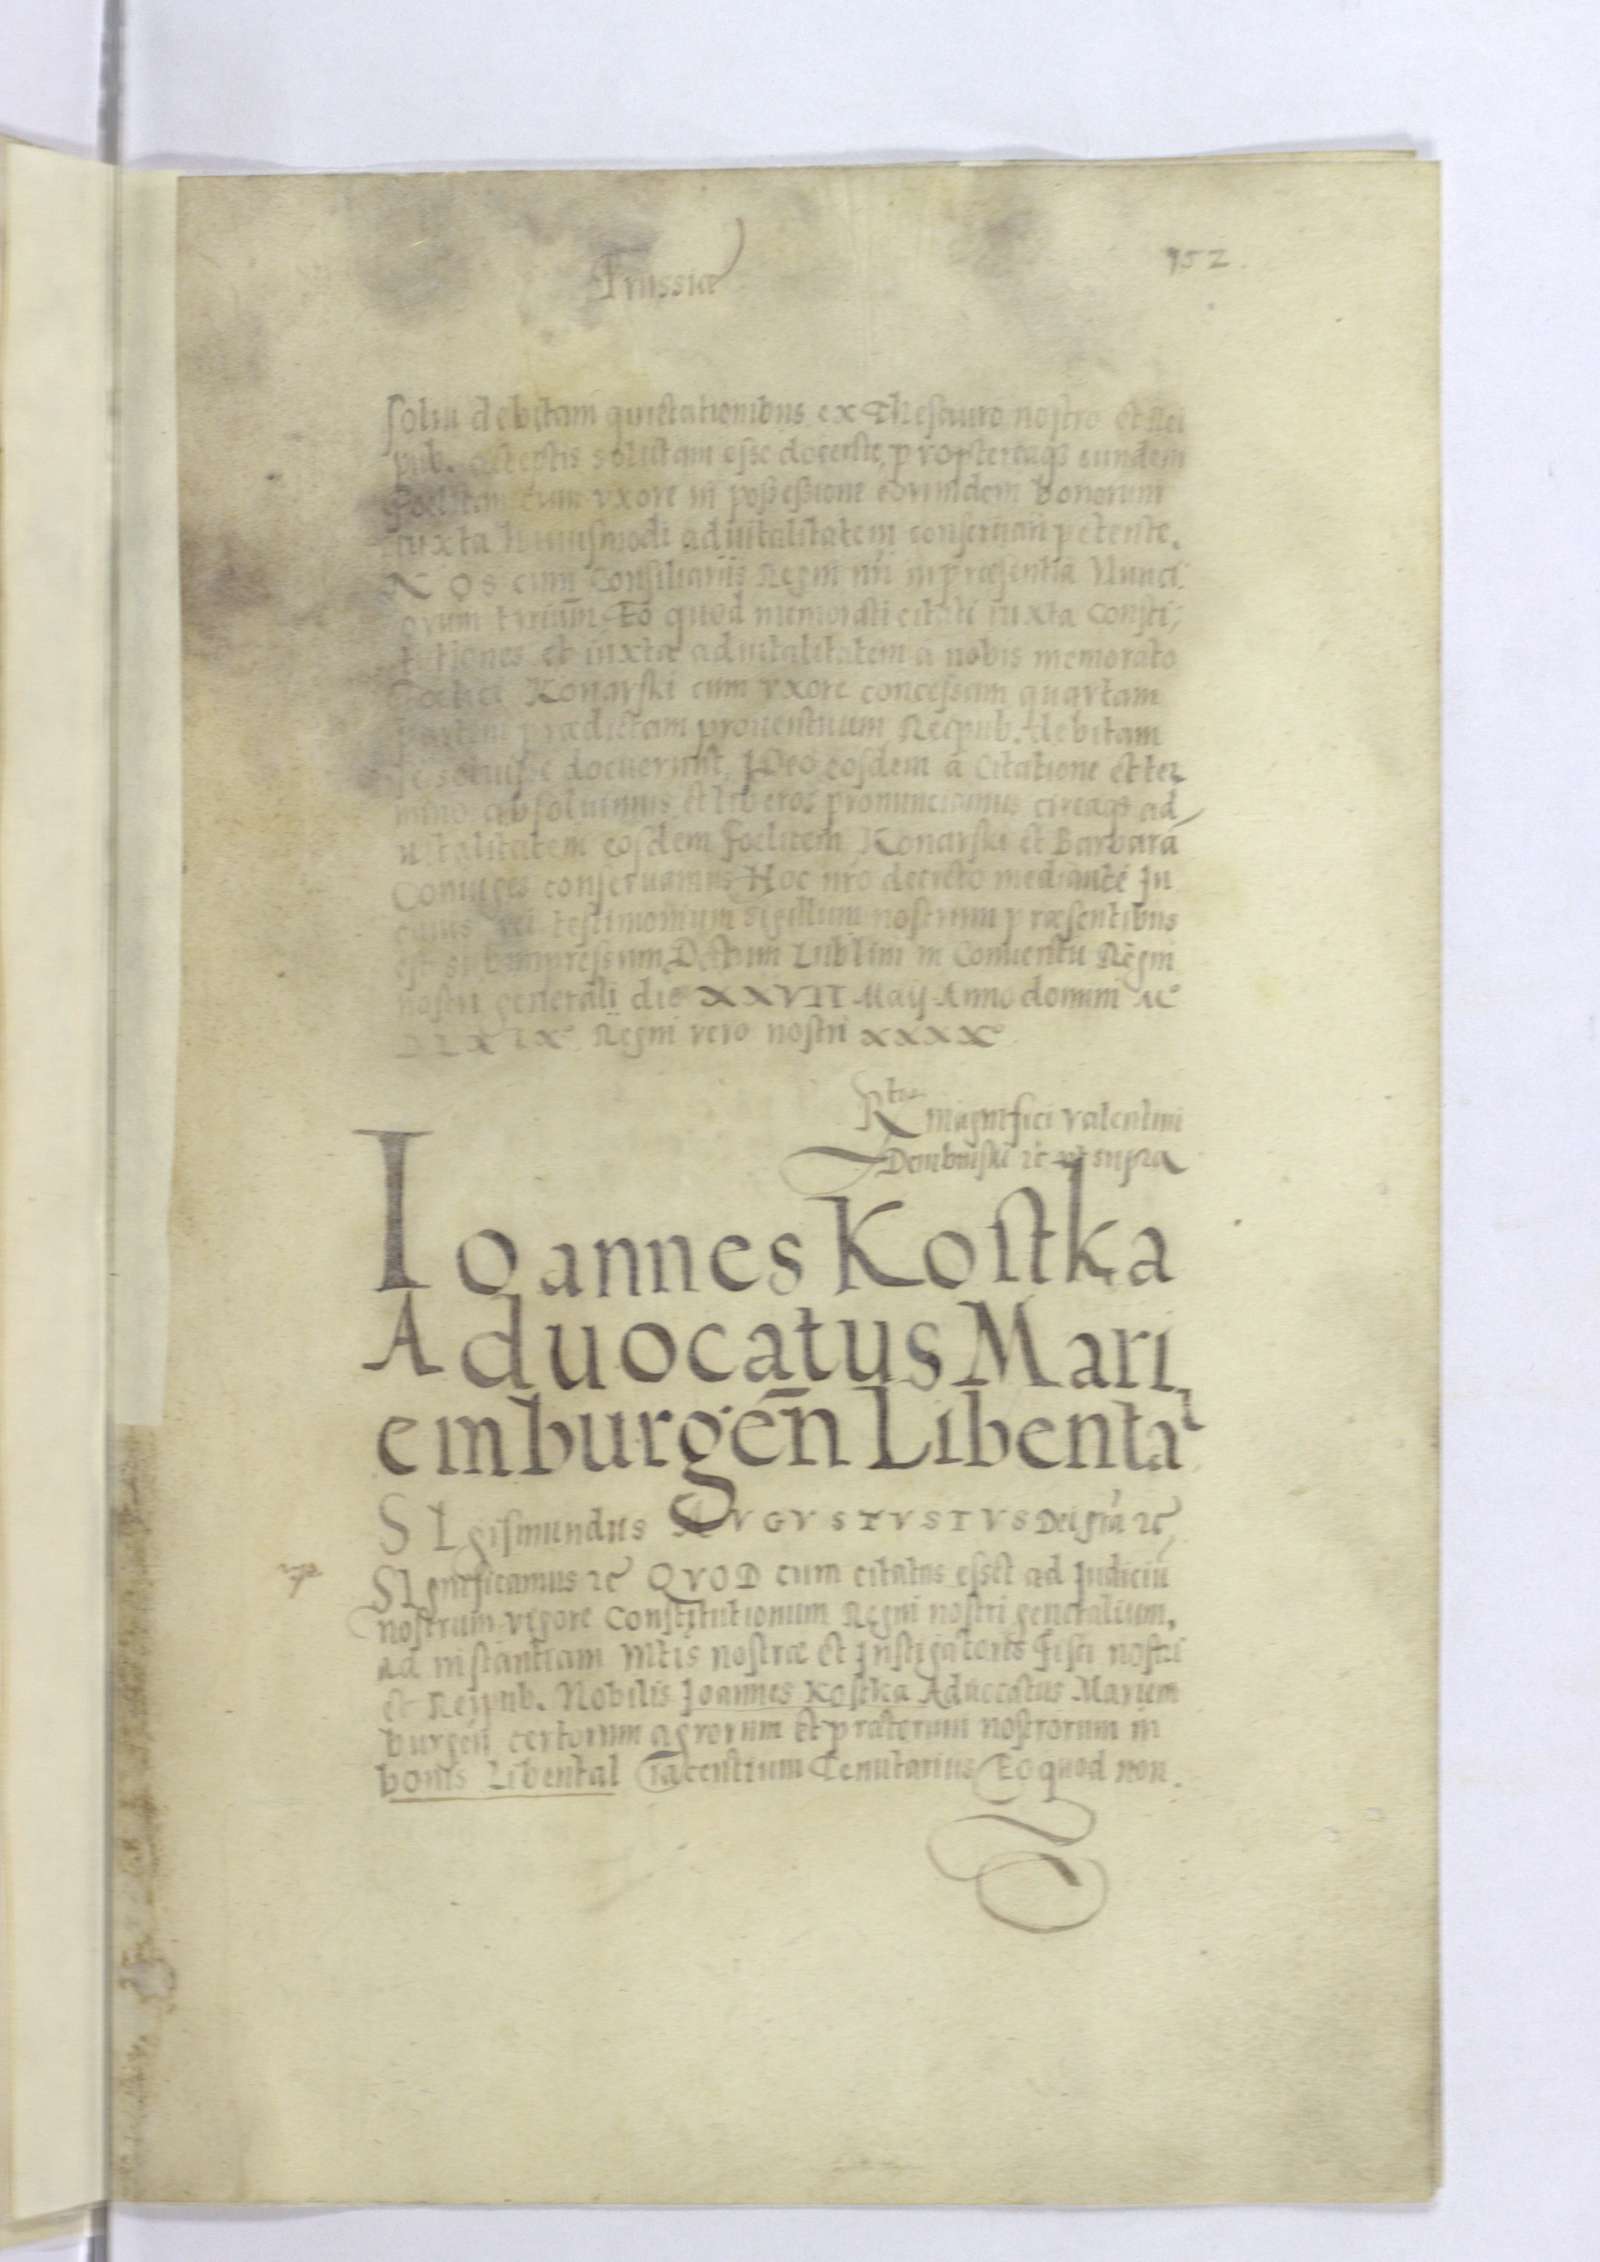 Prussiae
952.
solui debitam quietationibus ex Thesauro nostro et Rei
pub. ostensis solutam esse docente, propstereaqs eundem
Foelicem cum vxore in possessione eorundem bonorum
iuxta huiusmodi aduitalitatem conseruari petente.
NOS cum Consiliariis Regni nri in præsentia Nunci
orum trrium, Eo quod memorati citati iuxta Consti,
tutiones et iuxta aduitalitatem a nobis memorato
Foelici Konarski cum vxore concessam quartam
partem prædictam prouentuum Reipub. debitam
se soluisse docuerunt, IDeo eosdem a Citatione et ter,
mino absoluimus et liberos pronunciamus circaqs ad,
uitalitatem eosdem Foelicem Konarski et Barbara
Coniuges conseruamus Hoc nro decreto mediante In
cuius rei testimonium Sigillum nostrum præsentibus
est subimpressum Datum Lublini in Conuentu Regni
nostri generali die XXVII Maij Anno domini Mº
DLXIXº Regni vero nostri XXXXº
Rtio Magnifici Valentini
Dembinski &c vt supra
Ioannes Kostka
Aduocatus Mari,
emburgen Libental
SIgismundus AVGVSTVSTVS Dei gra &c
SIgnificamus &c QVOD cum citatus esset ad Judiciu
nostrum vigore Constitutionum Regni nostri generalium,
ad instantiam Mtis nostræ et Instigatoris Fisci nostri
et Reipub. Nobilis Joannes Kostka Aduocatus Mariem
burgen certorum agrorum et pratorum nostrorum in
bonis Libental Iacentium Tenutarius Eo quod non.